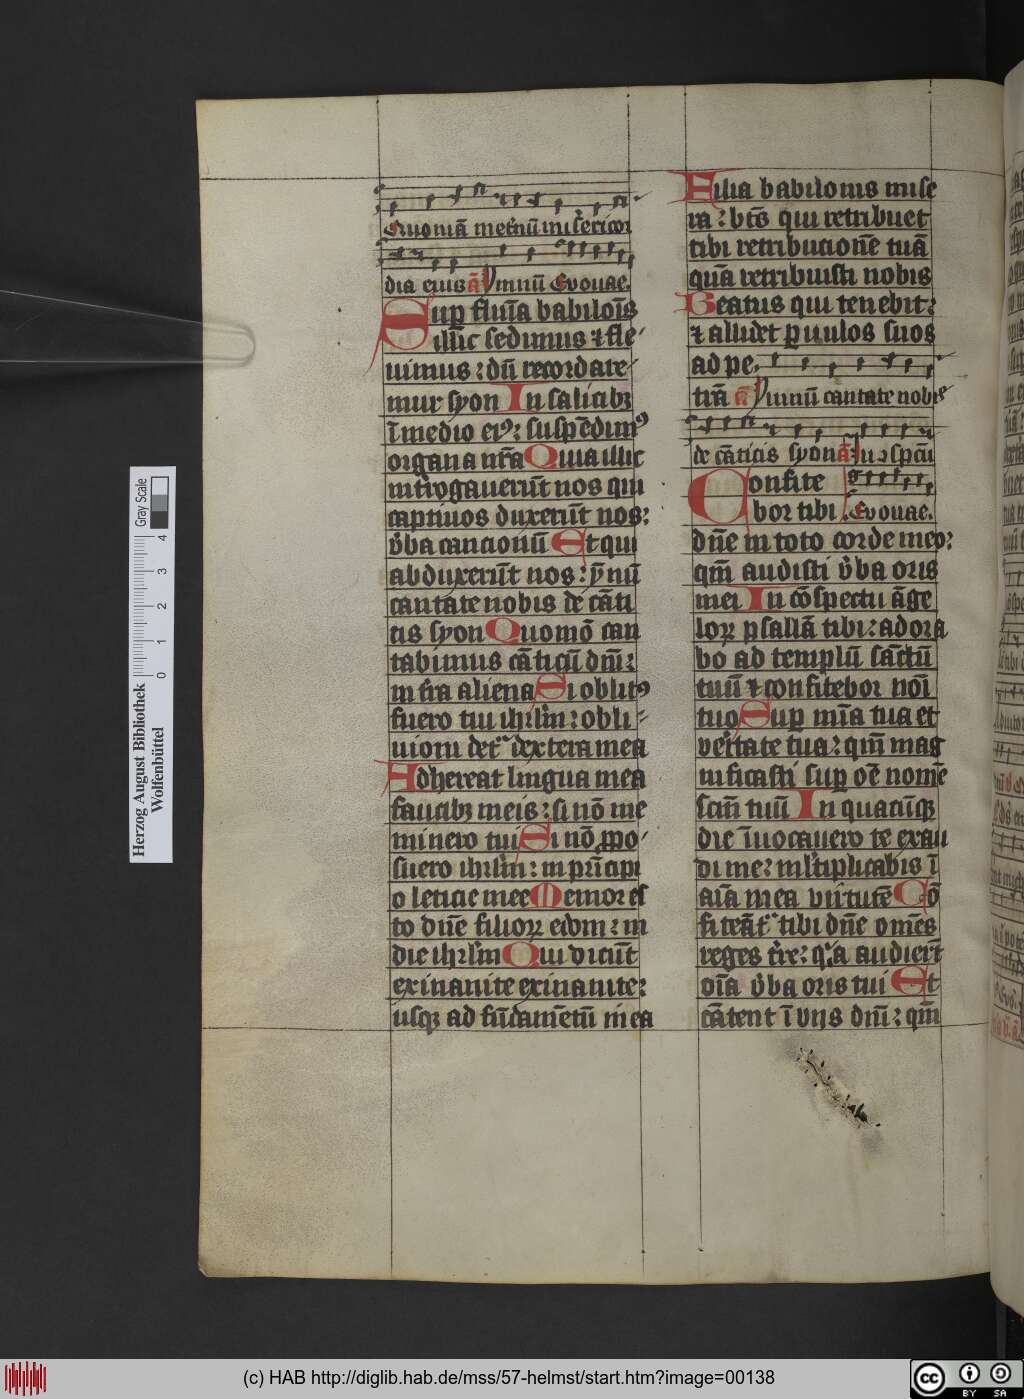 Quoniā in etnū misericor
dia eius ā Ymnū Euouae.
Sup flum̄a babiloīs
illic sedimus ⁊ fle
uimus: dū recordare
mur syon In salicibꝫ
ī medio eiꝰ: suspēdimꝰ
organa nr̄a Quia illic
introgauerūt nos qui
captiuos duxerūt nos:
ūba cancionū Et qui
abduxerūt nos: ymnū
cantate nobis de cāti
cis syon Quomō can
tabimus cāticū dnī:
in tra aliena Si oblitꝰ
fuero tui ihrlm: obli
uioni det᷑ dextera mea
Adhereat lingua mea
faucibꝫ meis: si nō me
minero tui Si nō ꝓpo
suero ihrlm: in prīcipi
o leticie mee Memor es
to dn̄e filioꝝ edom: in
die ihrlm Qui dicūt
exinanite exinanite:
usqꝫ ad fūdamētū in ea
Filia babilonis mise
ra: bt̄s qui retribuet
tibi retribucionē tuā
quā retribuisti nobis
Beatus qui tenebit:
⁊ allidet ꝑuulos suos
ad pe
trā ā Ymnū cantate nobis
de cāticis syon ā In ꝯspcū
Confite
bor tibi Euouae.
dn̄e in toto corde meo:
qm̄ audisti ūba oris
mei In cōspectu āge
loꝝ psallā tibi: adora
bo ad templū sāctū
tuū ⁊ confitebor noī
tuo Sup mīa tua et
veritate tua: qm̄ mag
nificasti sup oē nomē
scm̄ tuū In quacūqꝫ
die īuocauero te exau
di me: ml̄tiplicabis ī
aīa mea virtutē Cō
fiteāt᷑ tibi dn̄e omēs
reges tr̄e: qꝛ audierūt
oīa ūba oris tui Et
cātent ī vijs dnī: qm̄
Herzog August Bibliothek
Wolfenbüttel
0 1 2 3 4
Gray Scale
(c) HAB http://diglib.hab.de/mss/57-helmst/start.htm?image=00138
cc BY SA